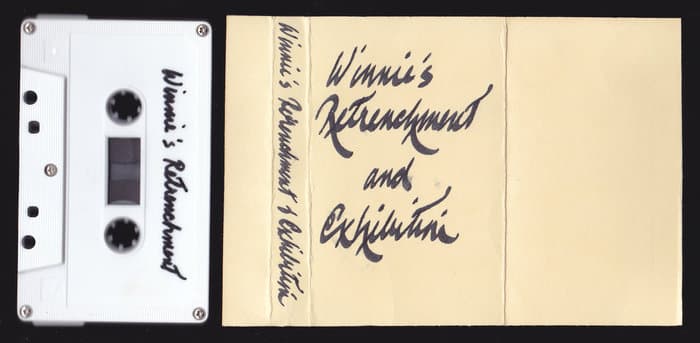 Winnie's Retrenchment
Winnie's Retrenchment & Exhibition
Winnie's
Retrenchment
and
Exhibition